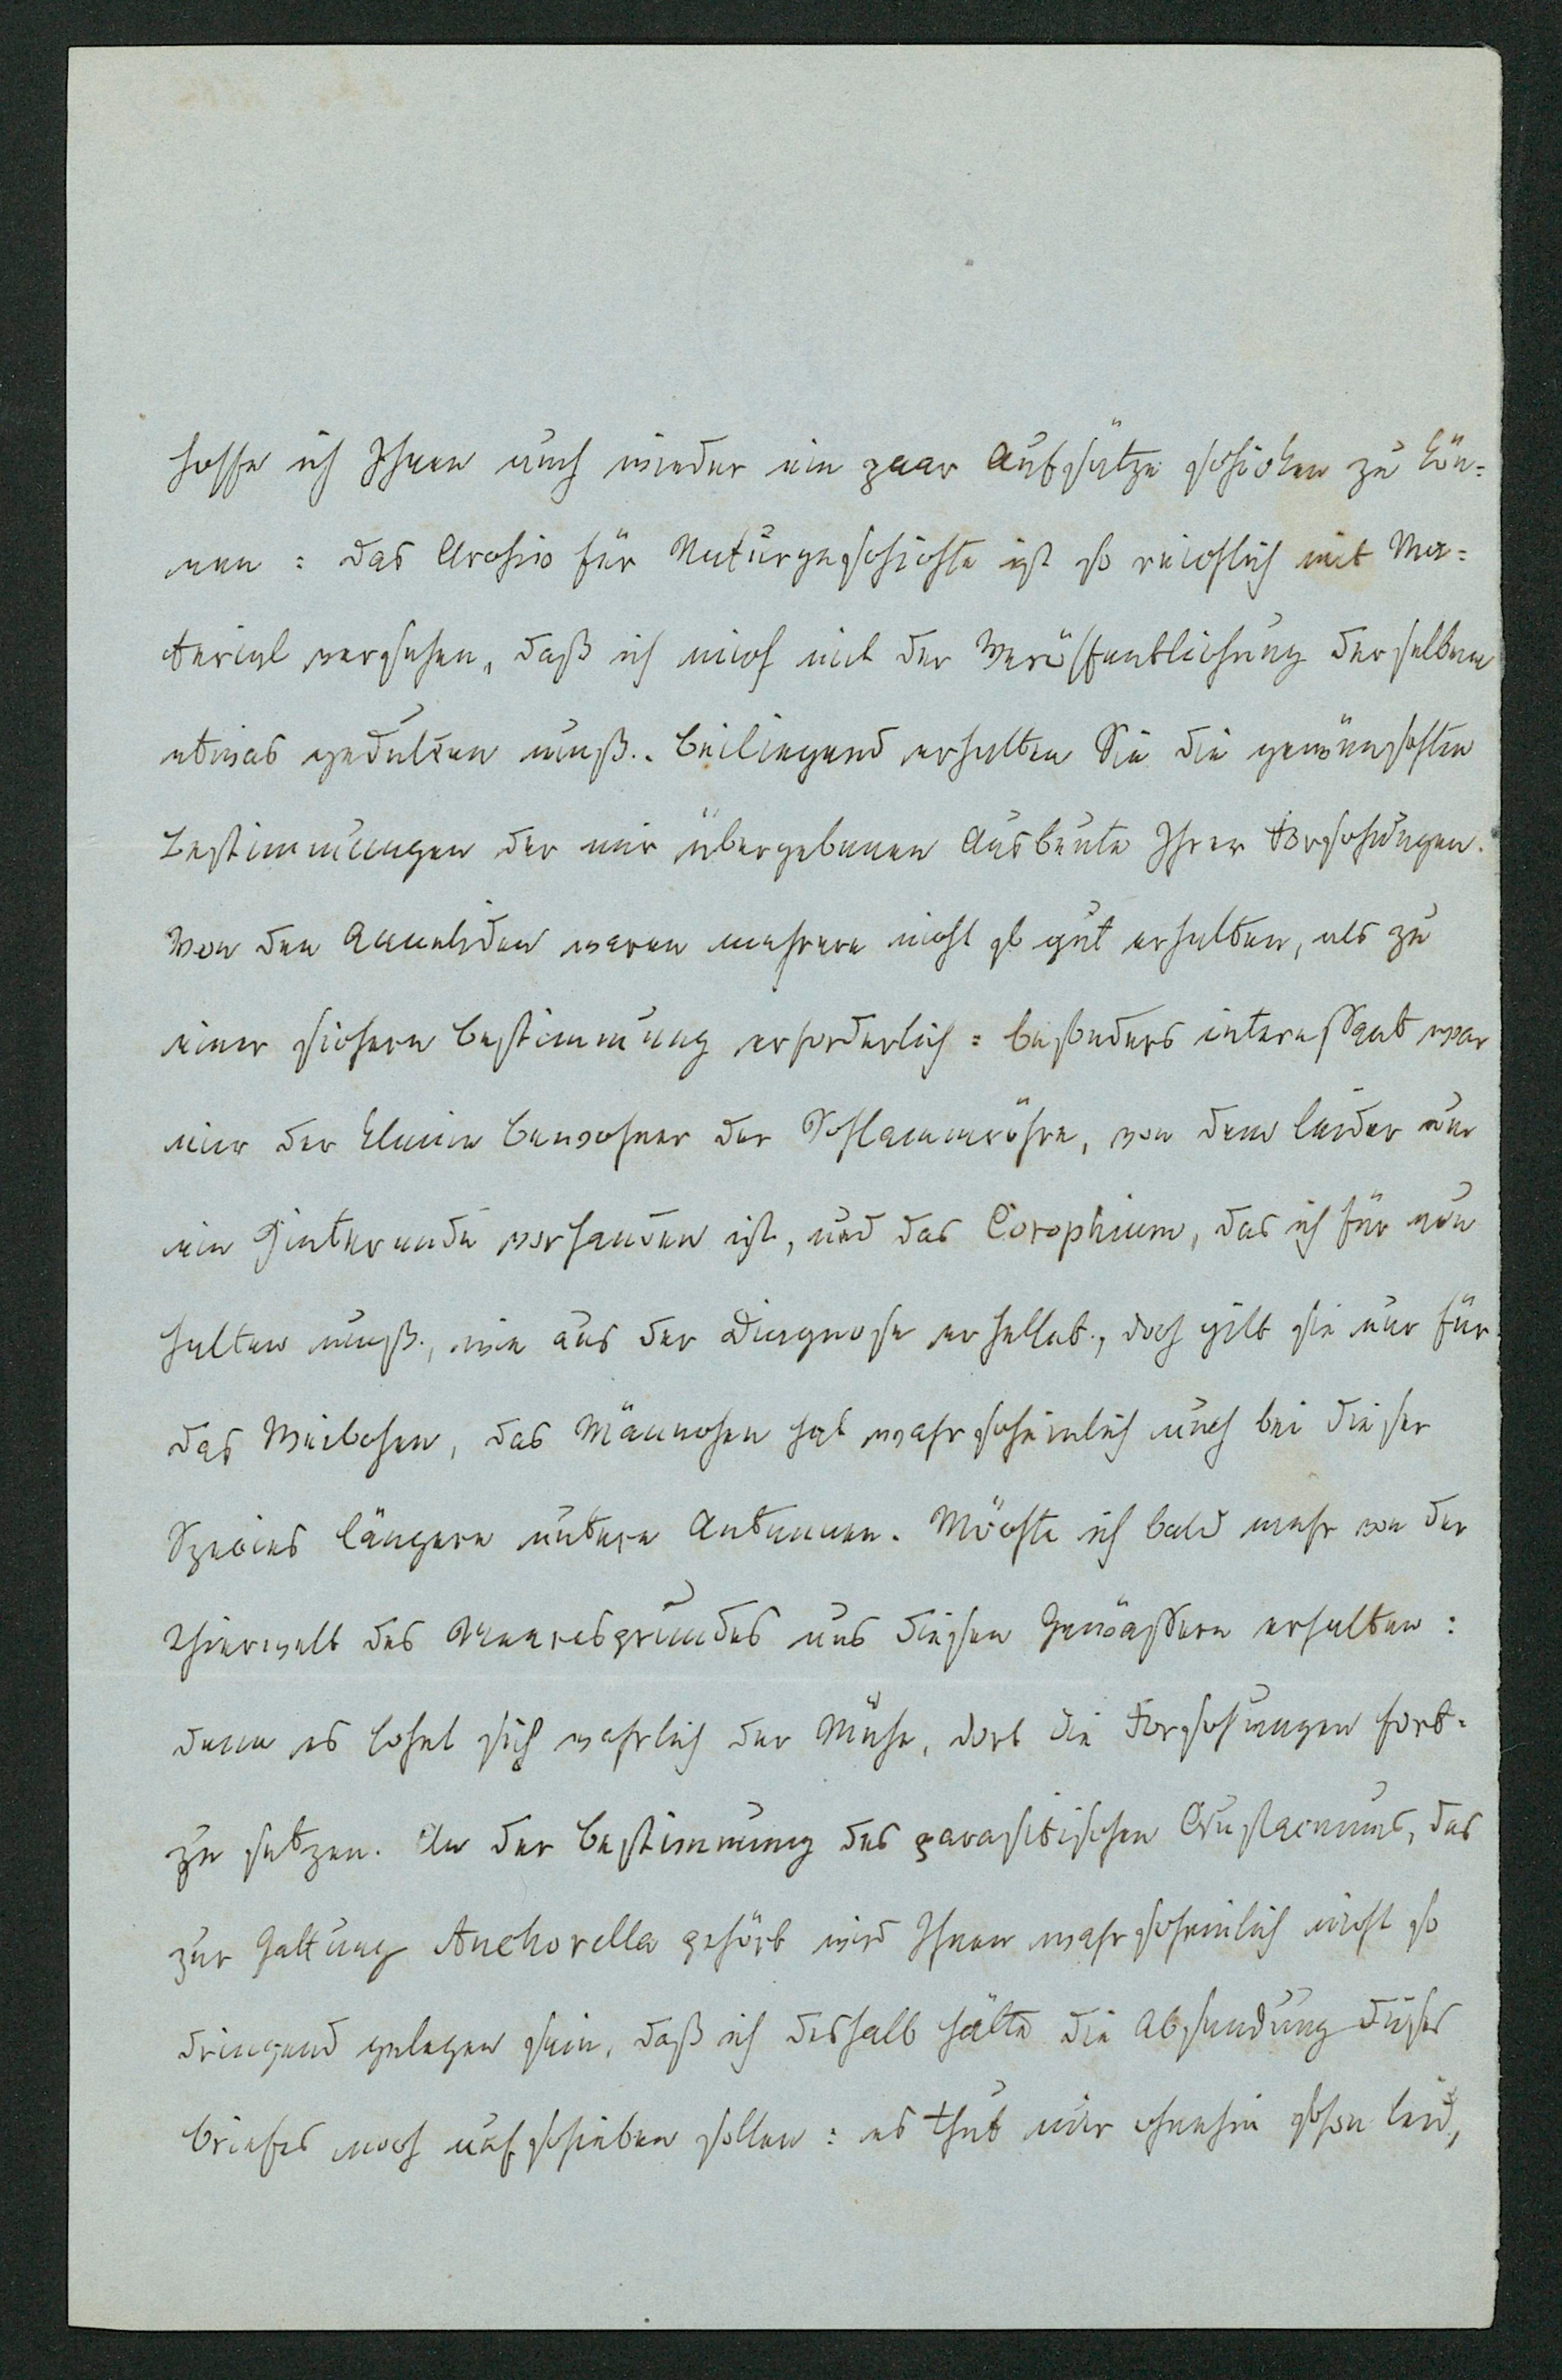 hoffe ich Ihnen auch wieder ein paar Aufsätze schicken zu kön=
nen: das Archiv für Naturgeschichte ist so reichlich mit Ma=
terial versehen, daß ich mich mit der Veröffentlichung derselben
etwas gedulden muß. Beiliegend erhalten Sie die gewünschten
Bestimmungen der mir übergebenen Ausbeute Ihrer Forschungen.
Von den Anneliden waren mehrere nicht so gut erhalten, als zu
einer sichern Bestimmung erforderlich: besonders interessant war
mir der kleine Bewohner der Schlammröhre, von dem leider nur
ein Hinterende vorhanden ist, und das Corophium, das ich für neu
halten muß, wie aus der Diagnose erhellet, doch gilt sie nur für
das Weibchen, das Männchen hat wahrscheinlich auch bei dieser
Species längere untere Antennen. Möchte ich bald mehr von der
Thierwelt des Meeresgrundes aus diesen Gewässern erhalten:
denn es lohnt sich wahrlich der Mühe, dort die Forschungen fort=
zu setzen. An der Bestimmung des parasitischen Crustaceums, das
zur Gattung Anchorella gehört wird Ihnen wahrscheinlich nicht so
dringend gelegen sein, daß ich deshalb hätte die Absendung dieses
Briefes noch aufschieben sollen: es thut mir ohnehin schon leid,